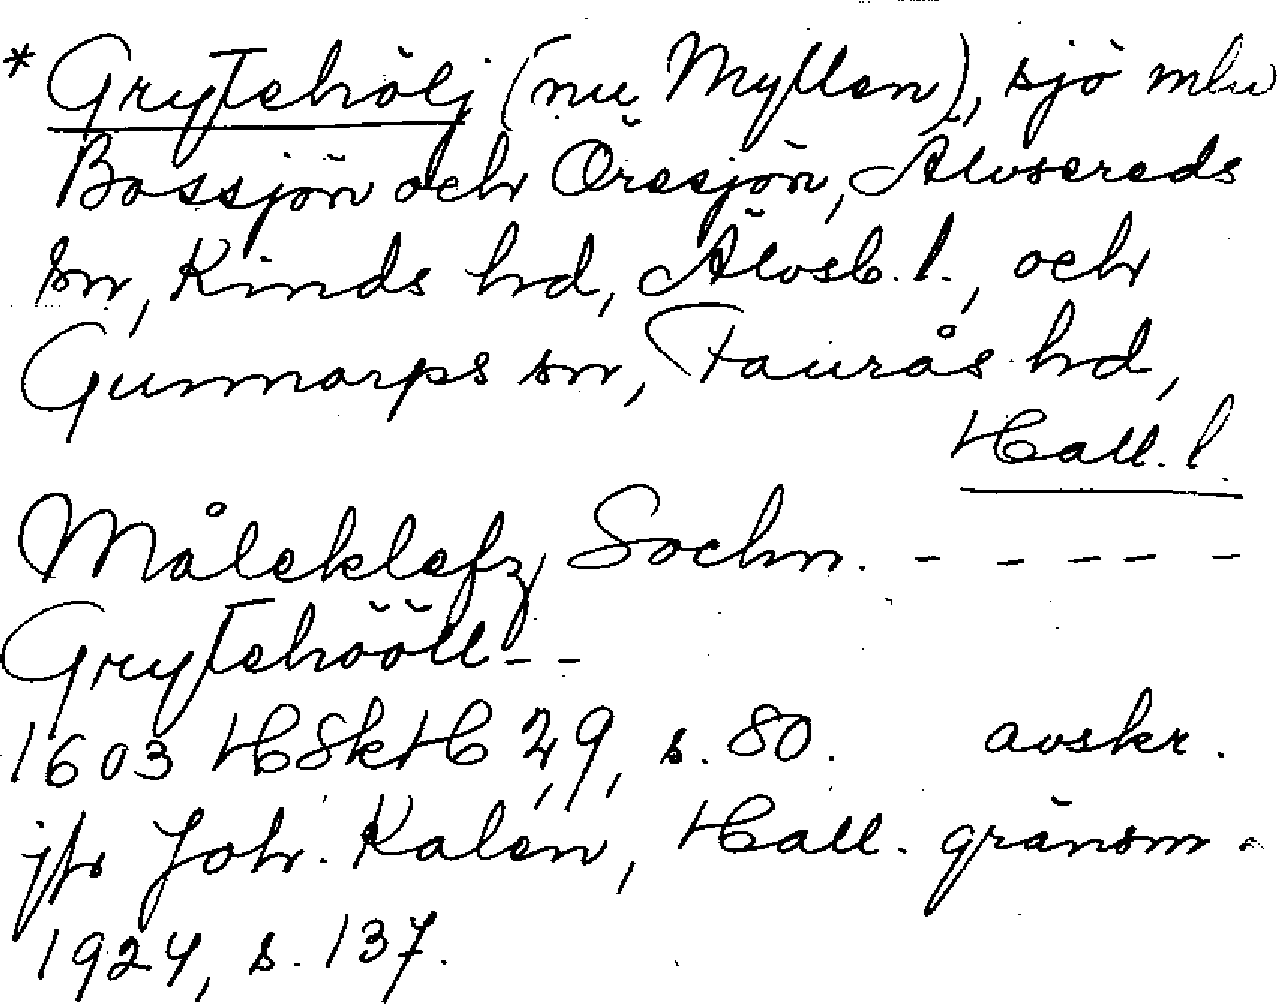 * Grytehölj (nu Myllen), sjö mlu
Bossjön och Öresjön, Älvsereds
sn, Kinds hd, Älvsb. l., och
Gunnarps sn, Faurås hd,
Hall. l.
Måleklefz Sochn. - - - - -
Grytehööll - -
1603 HSkH 29, s. 80. avskr.
jfr Joh. Kalén, Hall. gränsm.
1924, s. 137.